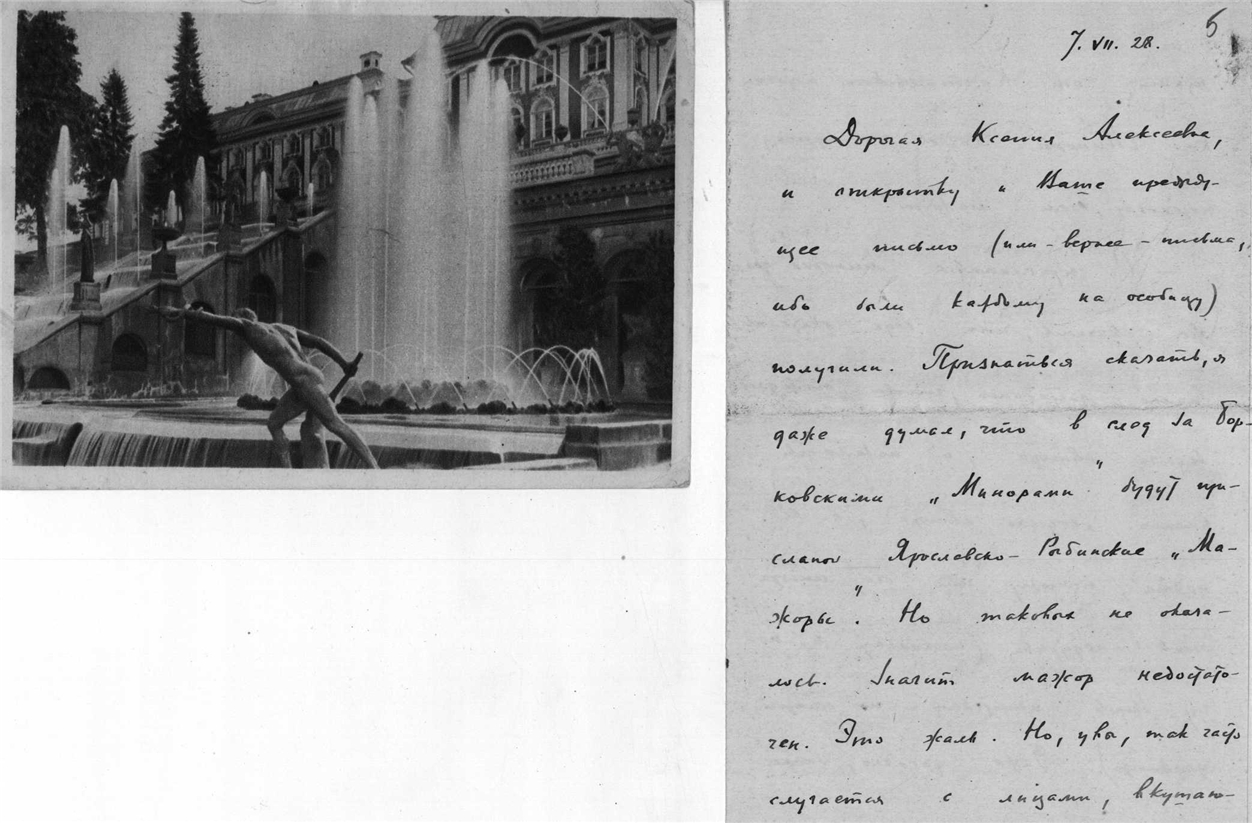 5
7. VII. 28.
Дорогая Ксения Алексеевна,
и открытку и Ваше предыду-
щее письмо (или - вернее - письма,
ибо были каждому на особицу)
получили. Признаться сказать, я
даже думал, что в след за Бор-
ковскими „Минорами" будут при-
сланы Ярославско-Рыбинские „Ма-
жоры". Но таковых не оказа-
лось. Значит мажор недостато-
чен. Это жаль. Но, увы, так часто
случается с лицами, вкушаю-